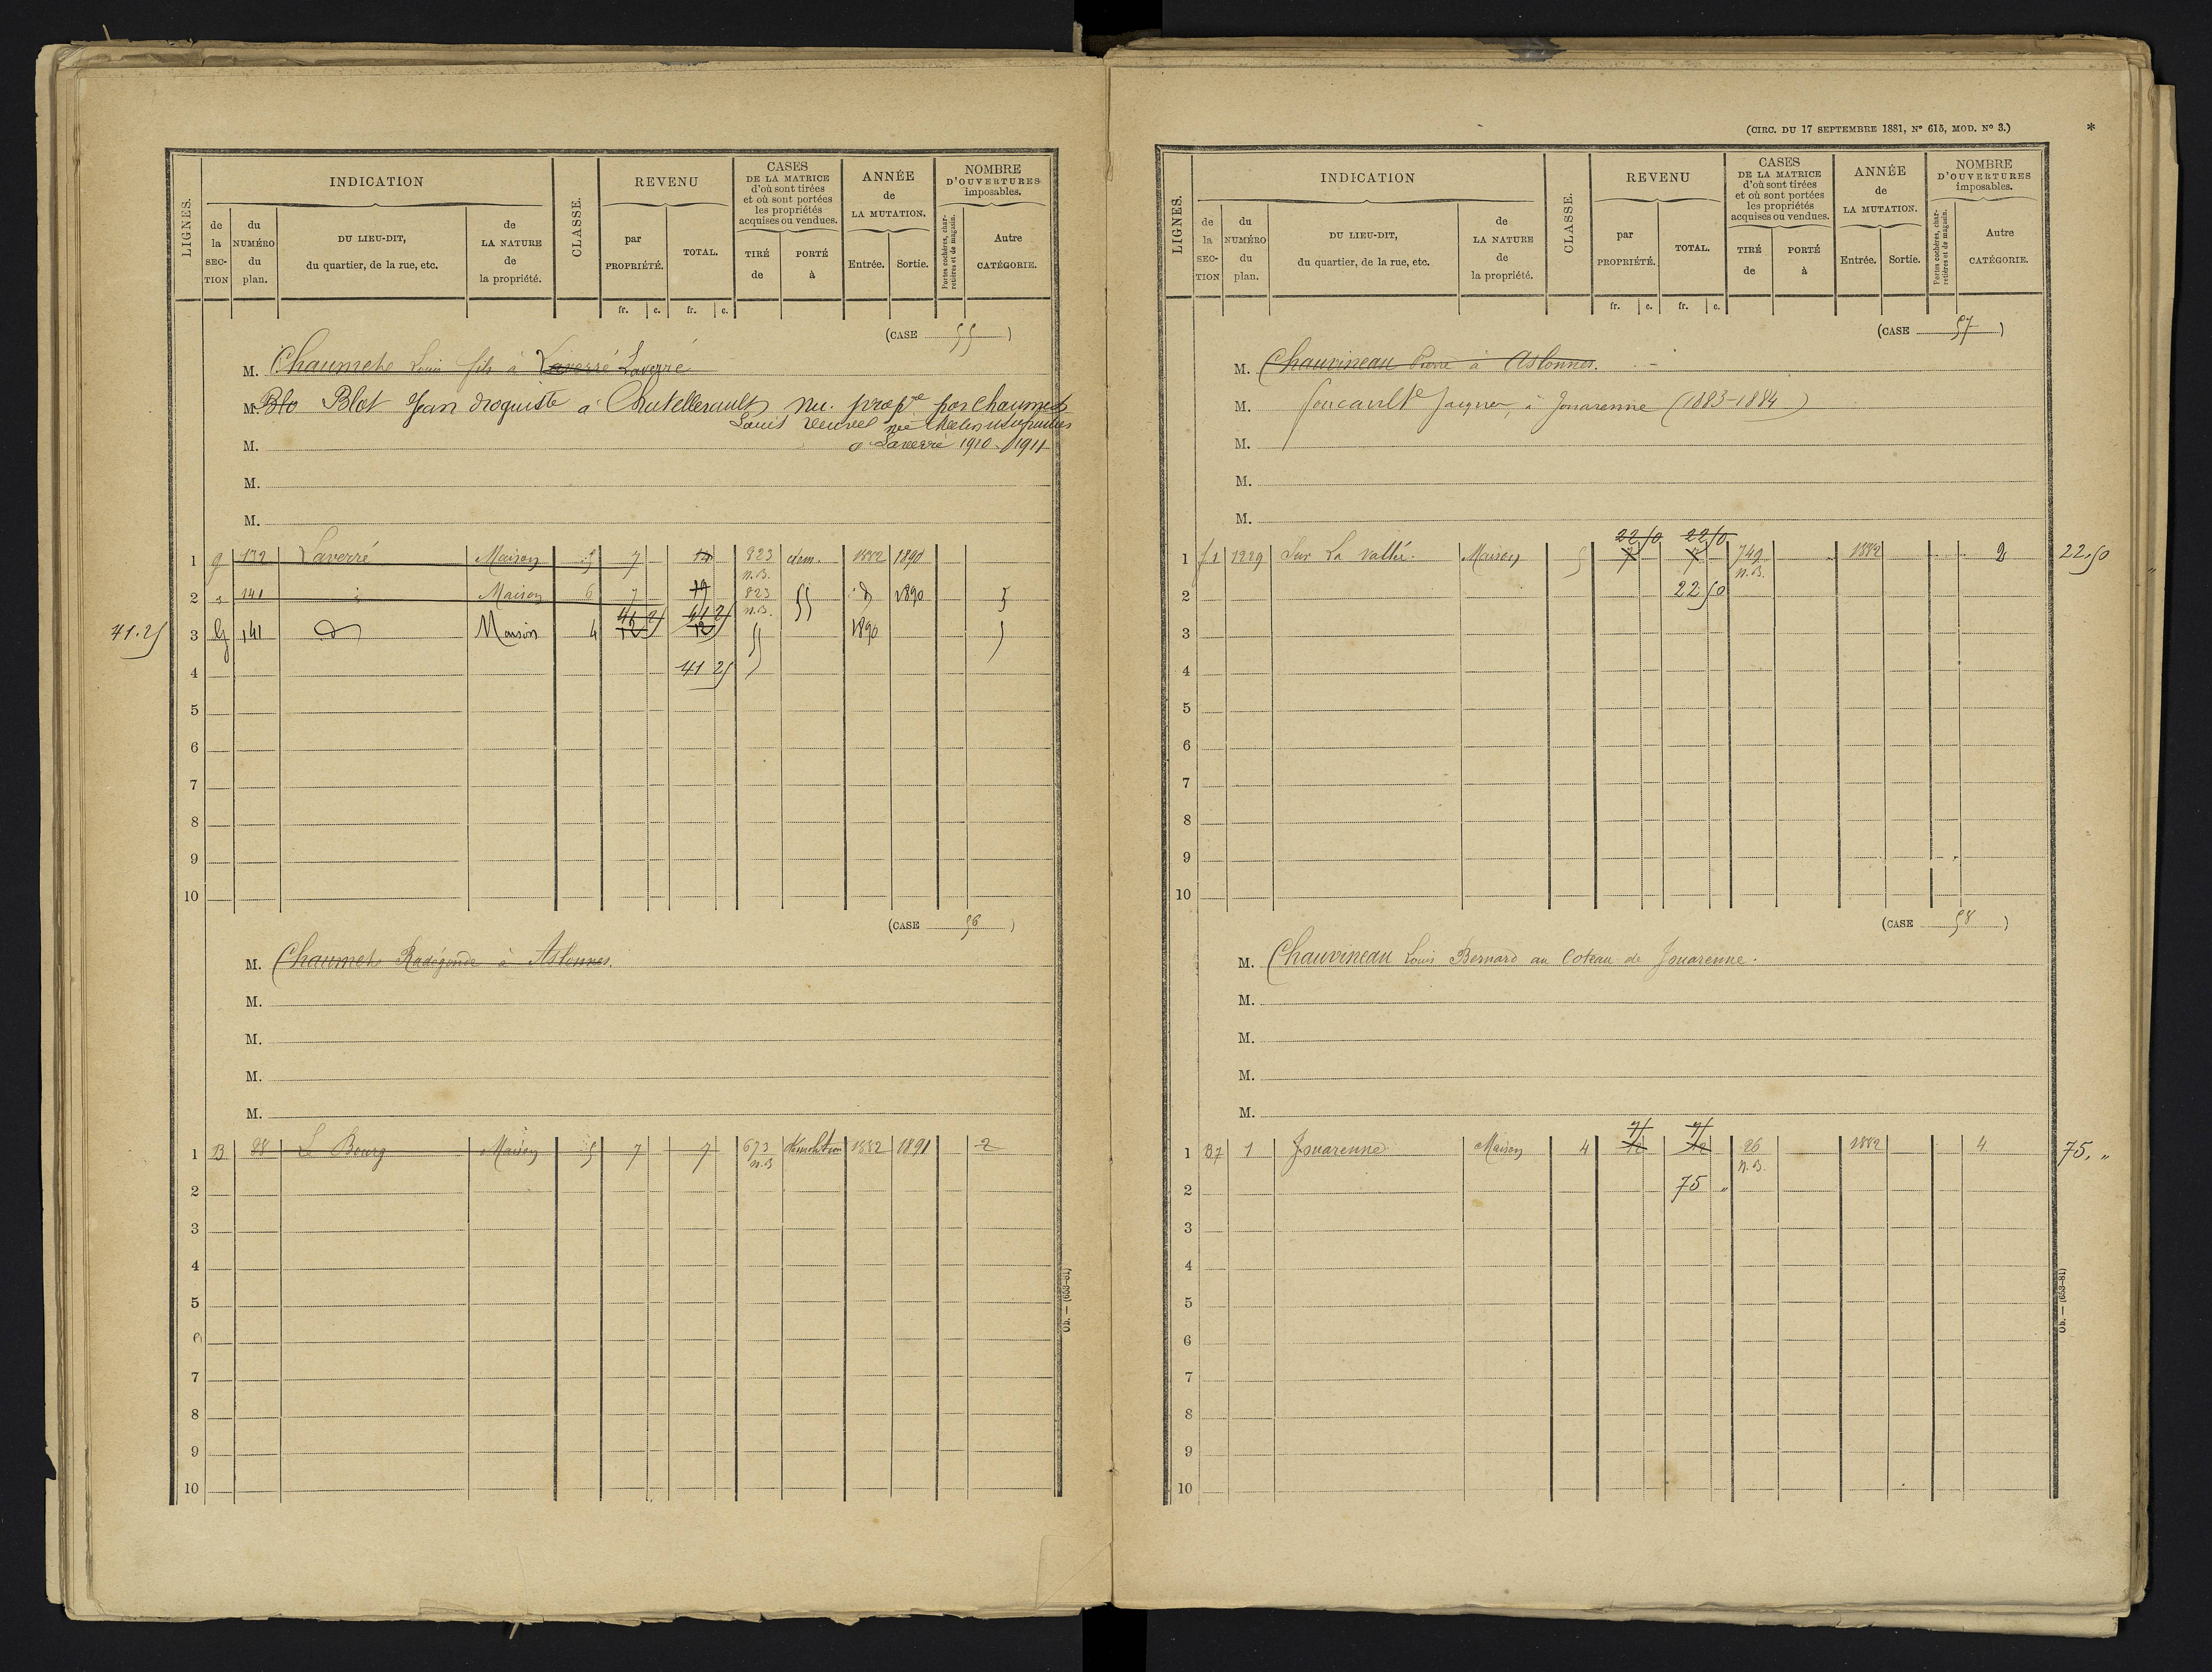 INDICATION
REVENU
CASES
DE LA MATRICE
d'où sont tirées
et où sont portées
les propriétés
acquises ou vendues.
ANNÉE
de
LA MUTATION.
NOMBRE
D'OUVERTURES
imposables.
LIGNES.
de la SECTION
du NUMÉRO du plan.
DU LIEU-DIT,
du quartier, de la rue, etc.
de LA NATURE de la propriété.
CLASSE.
par PROPRIÉTÉ.
TOTAL.
TIRÉ de
PORTÉ à
Entrée.
Sortie.
Portes cochères, charretières et de magasin.
Autre CATÉGORIE.
fr. c. fr. c.
(CASE 55)
M. Chaumet Louis fils à Laverré Laverré
M. Blo Blot Jean droguiste à Chatellerault nu. propre par Chaumet
Louis veuve née
à Laverré 1910-1911
M.
M.
M.
1 g 132 Laverré Maison 5 7 14 823 n.B. dem. 1882 1890
2 141 Maison 6 7 823 n.B. 55 1890 5
41.25
3 G 141 d Maison 4 41 25 12 41 25 12 55 1890 5
4 41 25
5
6
7
8
9
10
(CASE 56)
M. Chaumet Radégonde à Aslonnes.
M.
M.
M.
M.
1 B 28 Le Bourg Maison 5 7 7 673 n.B Démolition 1882 1891 2
2
3
4
5
6
7
8
9
10
Ob. — (653-81)
(CIRC. DU 17 SEPTEMBRE 1881, Nº 615, MOD. Nº 3.) *
INDICATION
REVENU
CASES
DE LA MATRICE
d'où sont tirées
et où sont portées
les propriétés
acquises ou vendues.
ANNÉE
de
LA MUTATION.
NOMBRE
D'OUVERTURES
imposables.
LIGNES.
de la SECTION
du NUMÉRO du plan.
DU LIEU-DIT,
du quartier, de la rue, etc.
de LA NATURE de la propriété.
CLASSE.
par PROPRIÉTÉ.
TOTAL.
TIRÉ de
PORTÉ à
Entrée.
Sortie.
Portes cochères, charretières et de magasin.
Autre CATÉGORIE.
fr. c. fr. c.
(CASE 57)
M. Chauvineau Pierre à Aslonnes.
M. Foucault Jacques, à Jouarenne (1883-1884)
M.
M.
M.
22 50 22 50
1 f1 1229 Sur La vallée. Maison 5 7 7 749 n.B. 1882 2 22,50
2 22 50
3
4
5
6
7
8
9
10
(CASE 58)
M. Chauvineau Louis Bernard au Coteau de Jouarenne.
M.
M.
M.
M.
1 B2 1 Jouarenne Maison 4 12 12 26 n.B. 1882 4 75, "
2 75 "
3
4
5
6
7
8
9
10
Ob. — (653-81)